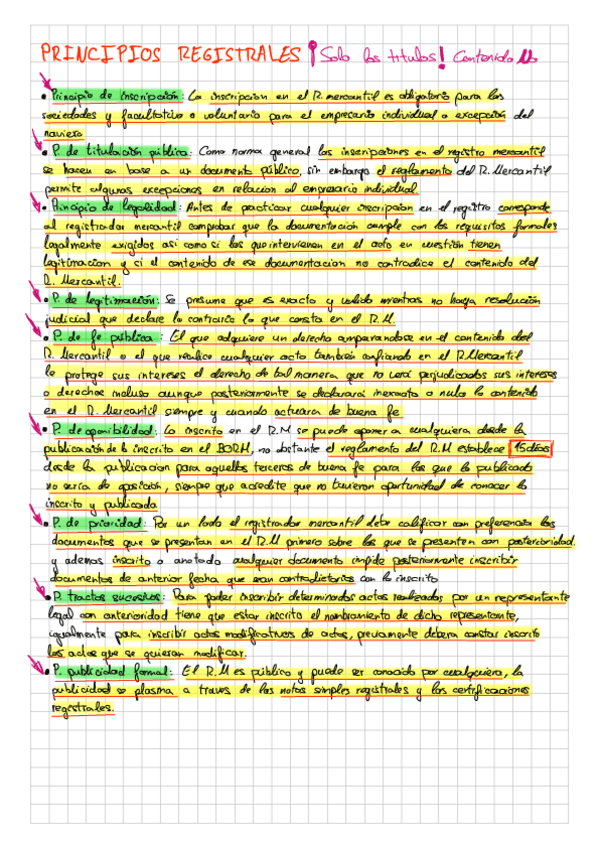 PRINCIPIOS REGISTRALES ¡Solo los titulos! Contenido
• Principio de inscripción: La inscripcion en el R. mercantil es obligatorio para las
sociedades y facultativo o voluntario para el empresario individual a excepcion del
naviero
• P. de titulación pública: Como norma general las inscripciones en el registro mercantil
se hacen en base a un documento público, sin embargo el reglamento del R. Mercantil
permite algunas excepciones en relacion al empresario individual
• Principio de legalidad: Antes de practicar cualquier inscripcion en el registro corresponde
al registrador mercantil comprobar que la documentación cumple con los requisitos formales
legalmente exigidos asi como si los que intervienen en el acto en cuestión tienen
legitimacion y si el contenido de ese documentacion no contradice el contenido del
R. Mercantil.
• P. de legitimación: Se presume que es exacto y valido mientras no haya resolución
judicial que declare lo contrario lo que consta en el R.M.
• P. de fe pública: El que adquiere un derecho amparandose en el contenido del
R. Mercantil o el que realice cualquier acto también confiando en el R. Mercantil
le protege sus intereses el derecho de tal manera que no verá perjudicados sus intereses
o derechos incluso aunque posteriormente se declarará inexacto o nulo lo contenido
en el R. Mercantil siempre y cuando actuara de buena fe
• P. de oponibilidad: Lo inscrito en el R.M se puede oponer a cualquiera desde la
publicación de lo inscrito en el BORM, no obstante el reglamento del R.M establece 15 días
desde la publicacion para aquellos terceros de buena fe para los que lo publicado
no seria de oposición, siempre que acredite que no tuvieron oportunidad de conocer lo
inscrito y publicado
• P. de prioridad: Por un lado el registrador mercantil debe calificar con preferencia los
documentos que se presentan en el R.M primero sobre los que se presenten con posterioridad
y ademas inscrito o anotado cualquier documento impide posteriormente inscribir
documentos de anterior fecha que sean contradictorios con lo inscrito
• P. tractos sucesivos: Para poder inscribir determinados actos realizados por un representante
legal con anterioridad tiene que estar inscrito el nombramiento de dicho representante,
igualmente para inscribir actos modificativos de actos, previamente debera constar inscrito
los actos que se quieran modificar.
• P. publicidad formal: El R.M es público y puede ser conocido por cualquiera, la
publicidad se plasma a traves de las notas simples registrales y las certificaciones
registrales.